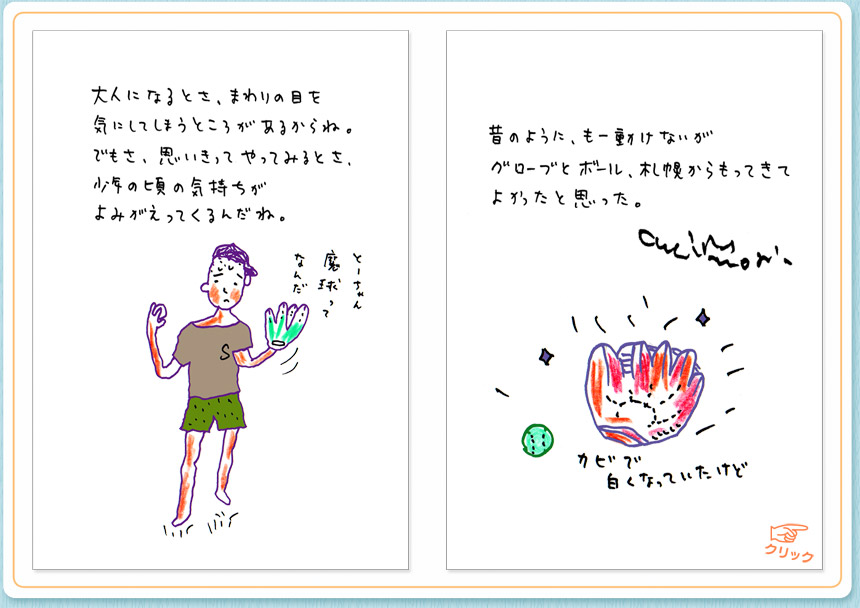 大人になるとさ、まわりの目を
気にしてしまうところがあるからね。
でもさ、思いきってやってみるとさ、
少年の頃の気持ちが
よみがえってくるんだね。
とーちゃん
魔球って
なんだ
S
昔のように、もー動けないが
グローブとボール、札幌からもってきて
よかったと思った。
カビで
白くなっていたけど
クリック